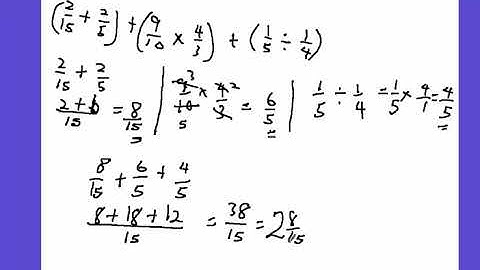 (2/15 + 2/5) + (9/10 × 4/3) + (1/5 ÷ 1/4)
2/15 + 2/5
(2+6)/15 = 8/15 | 9³/10₅ × 4²/3 = 6/5 | 1/5 ÷ 1/4 = 1/5 × 4/1 = 4/5
8/15 + 6/5 + 4/5
(8+18+12)/15 = 38/15 = 2 8/15